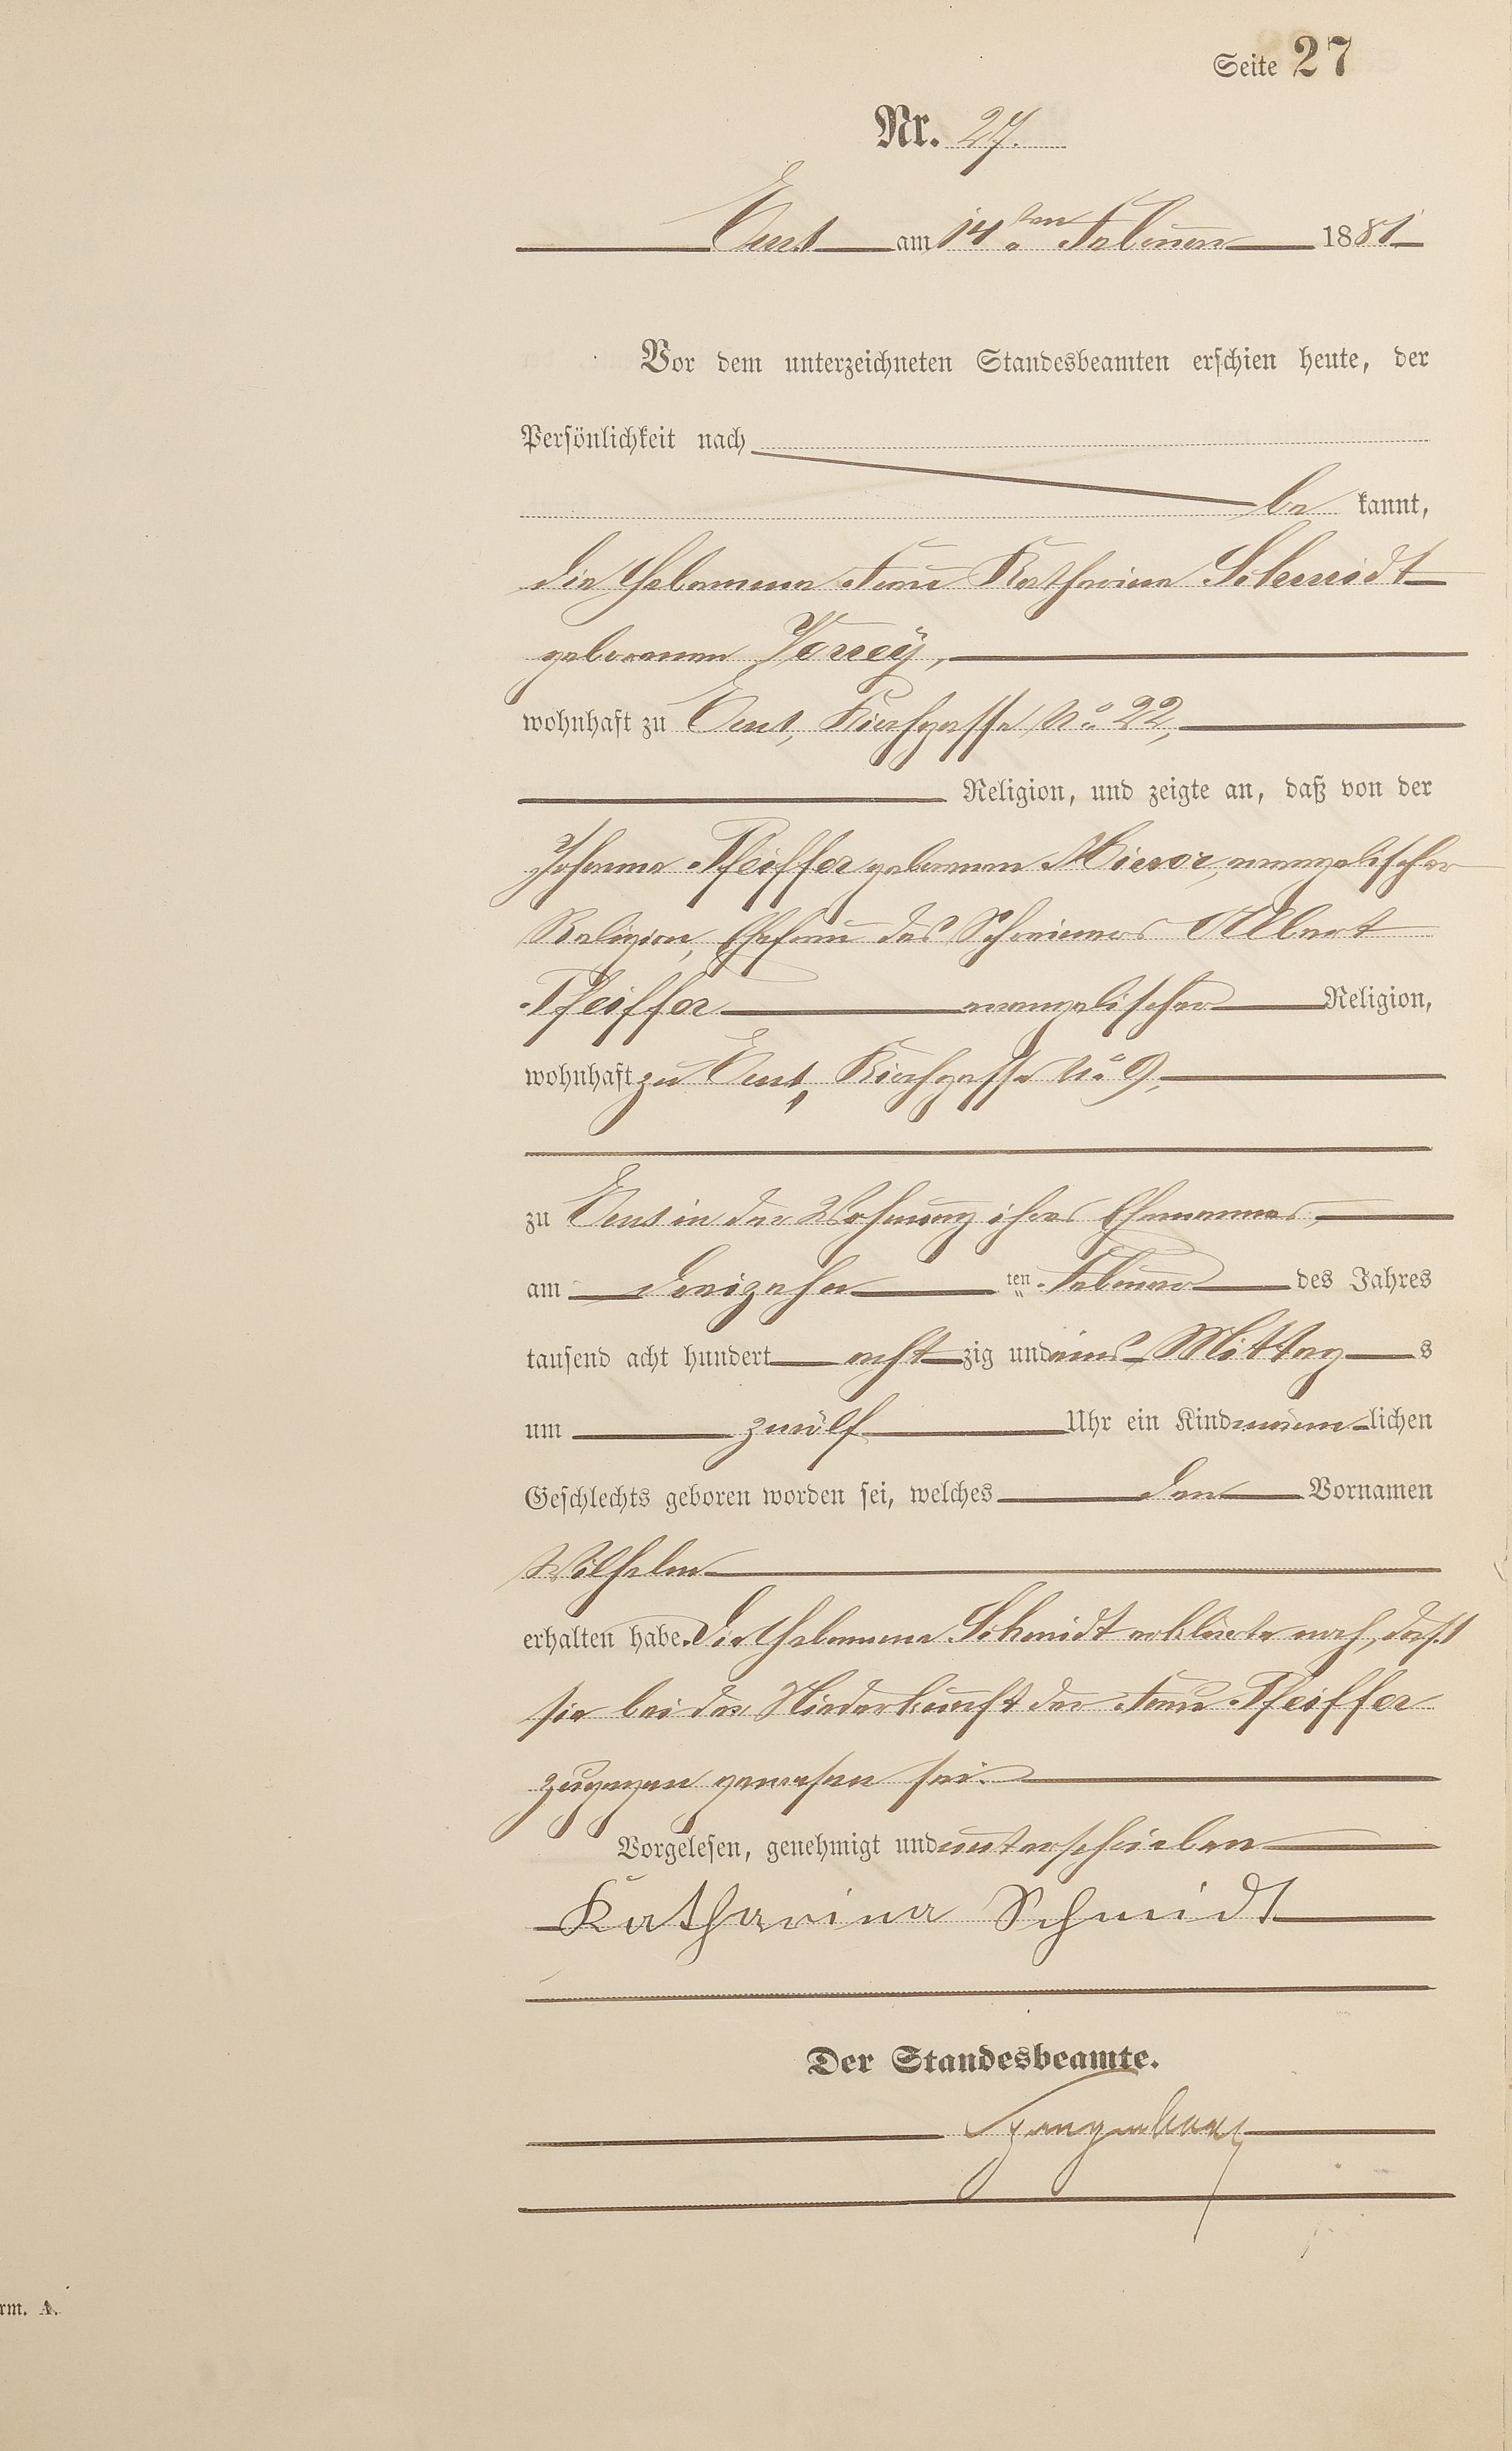 Seite 27
Nr. 27.
Ems am 14ten Februar 1881
Vor dem unterzeichneten Standesbeamten erschien heute, der
Persönlichkeit nach
be kannt,
die Hebamme Frau Katharina Schmidt
geborenen
wohnhaft zu Ems, Kirchgasse No 22,
Religion, und zeigte an, daß von der
Johanna Pfeiffer geborenen evangelischer
Religion, Ehefrau des Schreiners Albert
Pfeiffer evangelischer Religion,
wohnhaft zu Ems, Kirchgasse No 9,
zu Ems in der Wohnung ihres Ehemannes,
am dreizehn ten Februar des Jahres
tausend acht hundert acht zig und eins Mittag s
um zwölf Uhr ein Kind männ lichen
Geschlechts geboren worden sei, welches den Vornamen
Wilhelm
erhalten habe. Die Hebamme Schmidt erklärte noch, daß
sie bei der Niederkunft der Frau Pfeiffer
zugegen gewesen sei.
Vorgelesen, genehmigt und unterschrieben
Katharina Schmidt
Der Standesbeamte.
rm. A.